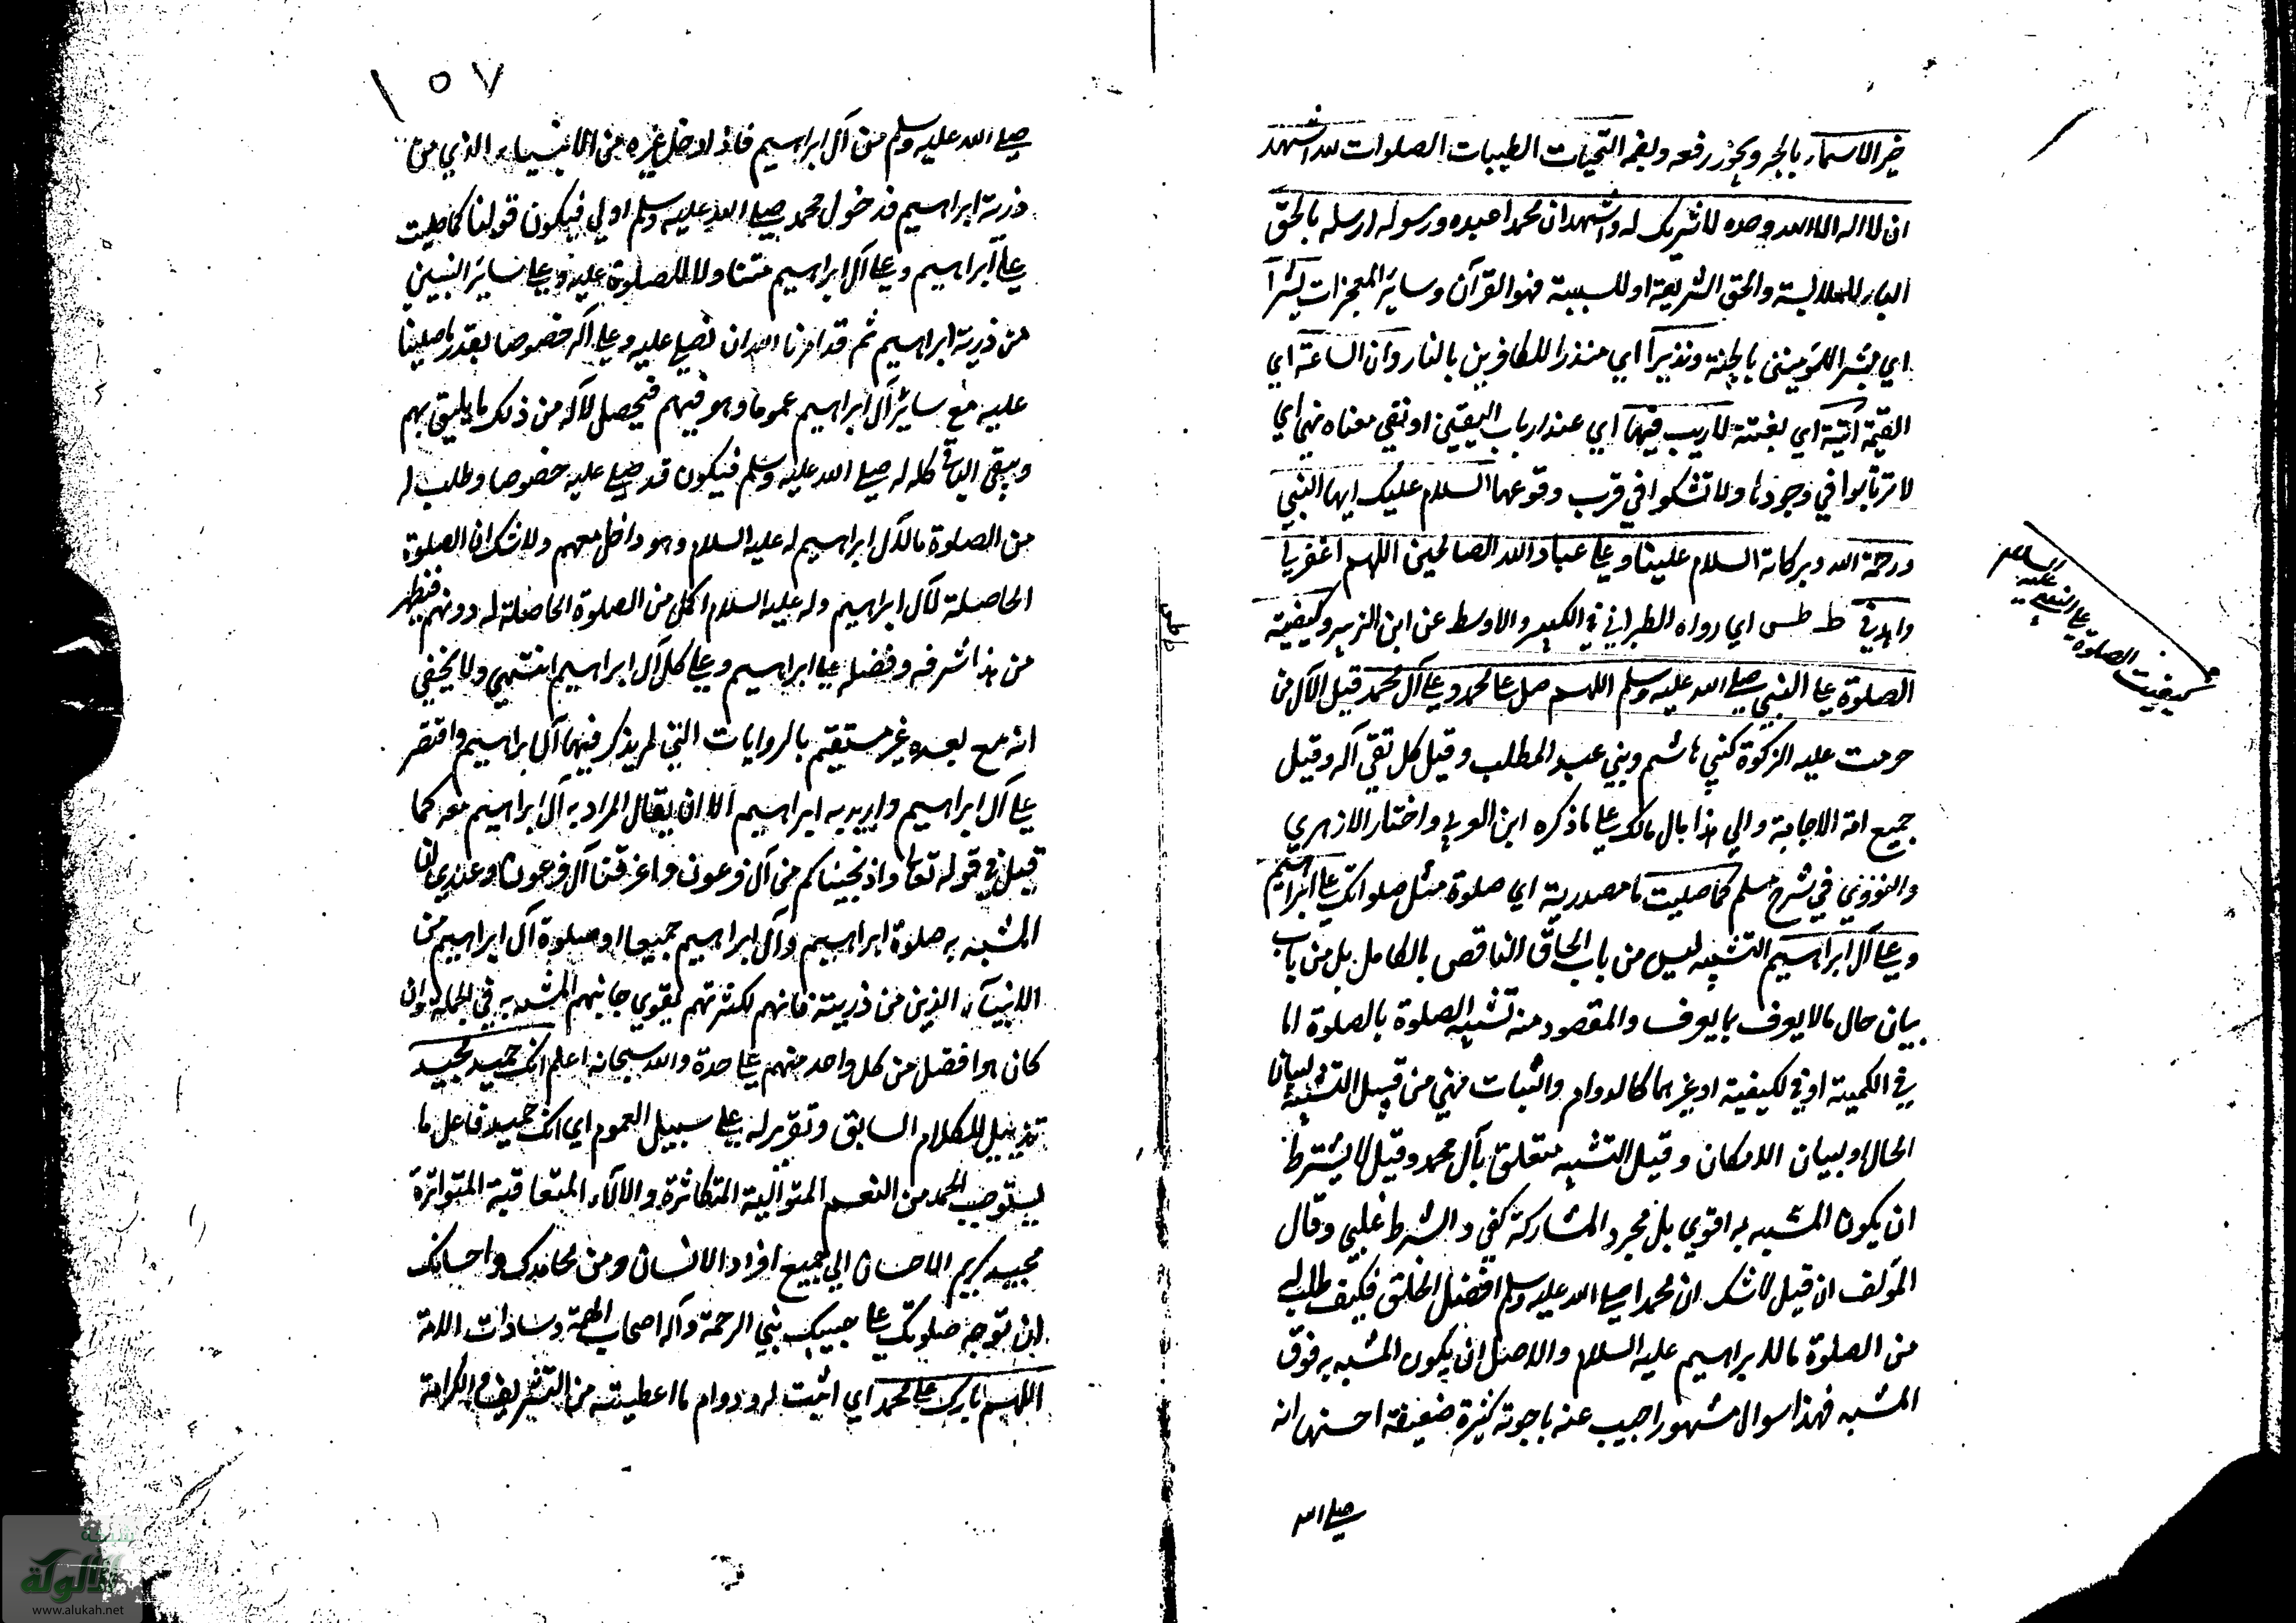 خير الاسماء بالجر ويجوز رفعه وبضمه التحيات الطيبات الصلوات لله اشهد
ان لا اله الا الله وحده لا شريك له واشهد ان محمدا عبده ورسوله ارسله بالحق
الباء للملابسة والحق الشريعة او للسببية فهو القرآن وسائر المعجزات بشيرا
اي مبشرا للمؤمنين بالجنة ونذيرا اي منذرا للكافرين بالنار وان الساعة اي
القيمة آتية اي بغتة لا ريب فيها اي عند ارباب اليقين او نفي معناه نهي اي
لا ترتابوا في وجودها ولا تشكوا في قرب وقوعها السلام عليك ايها النبي
ورحمة الله وبركاته السلام علينا وعلى عباد الله الصالحين اللهم اغفر لي
واهدني ط طس اي رواه الطبراني في الكبير والاوسط عن ابن الزبير وكيفية
الصلوة على النبي صلى الله عليه وسلم اللهم صل على محمد وعلى آل محمد قيل الآل من
حرمت عليه الزكوة كبني هاشم وبني عبد المطلب وقيل كل تقي آله وقيل
جميع امة الاجابة والى هذا مال مالك على ما ذكره ابن العربي واختار الازهري
والنووي في شرح مسلم كما صليت ما مصدرية اي صلوة مثل صلواتك على ابراهيم
وعلى آل ابراهيم التشبيه ليس من باب الحاق الناقص بالكامل بل من باب
بيان حال ما لا يعرف بما يعرف والمقصود منه تشبيه الصلوة بالصلوة اما
في الكمية او في الكيفية او غيرهما كالدوام والثبات فهي من قبيل التشبيه لبيان
الحال او بيان الامكان وقيل التشبيه متعلق بآل محمد وقيل لا يشترط
ان يكون المشبه به اقوى بل مجرد المشاركة كفى والشرط غلبي وقال
المؤلف ان قيل لا شك ان محمدا صلى الله عليه وسلم افضل الخلق فكيف طلب له
من الصلوة ما لابراهيم عليه السلام والاصل ان يكون المشبه به فوق
المشبه فهذا سوال مشهور اجيب عنه باجوبة كثيرة ضعيفة احسنها انه
صلى الله
كيفيت الصلوة على النبي عليه السلام
١٥٧
صلى الله عليه وسلم من آل ابراهيم فاذا دخل غيره من الانبياء الذي من
ذرية ابراهيم فدخول محمد صلى الله عليه وسلم اولى فيكون قولنا كما صليت
على ابراهيم وعلى آل ابراهيم متناولا للصلوة عليه وعلى سائر النبيين
من ذرية ابراهيم ثم قد امرنا الله ان نصلي عليه وعلى آله خصوصا بقدر ما صلينا
عليه مع سائر آل ابراهيم عموما وهو فيهم فيحصل لآله من ذلك ما يليق بهم
ويبقى الباقي كله له صلى الله عليه وسلم فيكون قد صلى عليه خصوصا وطلب له
من الصلوة ما لآل ابراهيم له عليه السلام وهو داخل معهم ولا شك ان الصلوة
الحاصلة لآل ابراهيم وله عليه السلام اكمل من الصلوة الحاصلة له دونهم فيظهر
من هذا شرفه وفضله على ابراهيم وعلى كل آل ابراهيم انتهى ولا يخفى
انه مع بعده غير مستقيم بالروايات التي لم يذكر فيها آل ابراهيم واقتصر
على آل ابراهيم واريد به ابراهيم الا ان يقال المراد به آل ابراهيم معه كما
قيل في قوله تعالى واذ نجيناكم من آل فرعون واغرقنا آل فرعون وعندي ان
المشبه به صلوة ابراهيم وآل ابراهيم جميعا او صلوة آل ابراهيم من
الانبياء الذين من ذريته فانهم لكثرتهم يقوي جانبهم المشبه به في الجملة وان
كان هو افضل من كل واحد منهم على حدة والله سبحانه اعلم انك حميد مجيد
تذييل للكلام السابق وتقرير له على سبيل العموم اي انك حميد فاعل ما
يستوجب الحمد من النعم المتوالية المتكاثرة والآلاء المتعاقبة المتواترة
مجيد كريم الاحسان الى جميع افراد الانسان ومن محامدك واحسانك
ان توجه صلوتك على حبيبك نبي الرحمة وآله اصحاب الهمة وسادات الامة
اللهم بارك على محمد اي اثبت له ودوام ما اعطيته من التشريف والكرامة
شبكة
الألوكة
www.alukah.net